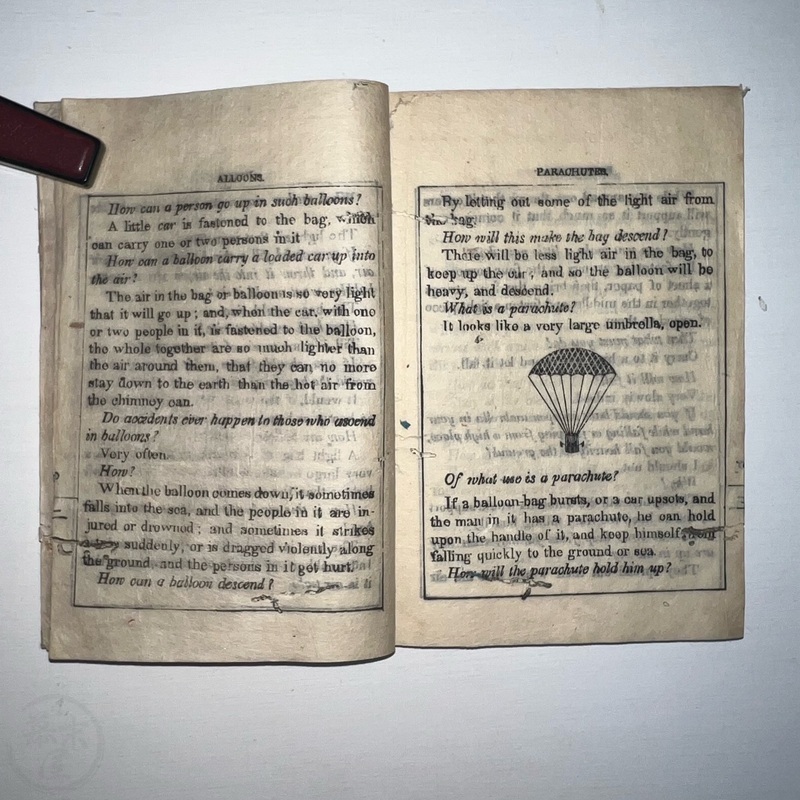 ALLOONS.
How can a person go up in such balloons?
A little car is fastened to the bag, which
can carry one or two persons in it
How can a balloon carry a loaded car up into
the air?
The air in the bag or balloon is so very light
that it will go up; and, when the car, with one
or two people in it, is fastened to the balloon,
the whole together are so much lighter than
the air around them, that they can no more
stay down to the earth than the hot air from
the chimney can.
Do accidents ever happen to those who ascend
in balloons?
Very often.
How?
When the balloon comes down, it sometimes
falls into the sea, and the people in it are in-
jured or drowned; and sometimes it strikes
suddenly, or is dragged violently along
the ground, and the persons in it get hurt.
How can a balloon descend?
PARACHUTES.
By letting out some of the light air from
the bag.
How will this make the bag descend?
There will be less light air in the bag, to
keep up the car, and so the balloon will be
heavy, and descend.
What is a parachute?
It looks like a very large umbrella, open.
Of what use is a parachute?
If a balloon-bag bursts, or a car upsets, and
the man in it has a parachute, he can hold
upon the handle of it, and keep himself from
falling quickly to the ground or sea.
How will the parachute hold him up?